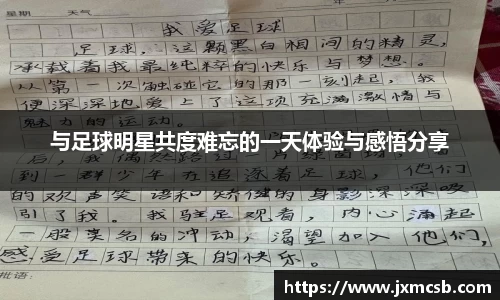 星期 天气
我爱足球
足球，这颗黑白相间的精灵，
承载着我最纯粹的快乐与梦想。
从第一次触碰它的那一刻起，我
便深深地爱上了这项充满激情与
魅力的运动。
与足球明星共度难忘的一天体验与感悟分享
后，我偶然路过一片绿茵场，看
到一群少年在追逐着足球，他们
的欢声笑语和矫健的身影深深吸
引了我。我驻足观看，内心涌起
一股莫名的冲动，渴望加入他们，
感受足球带来的快乐。
批语：
https://www.jxmcsb.com